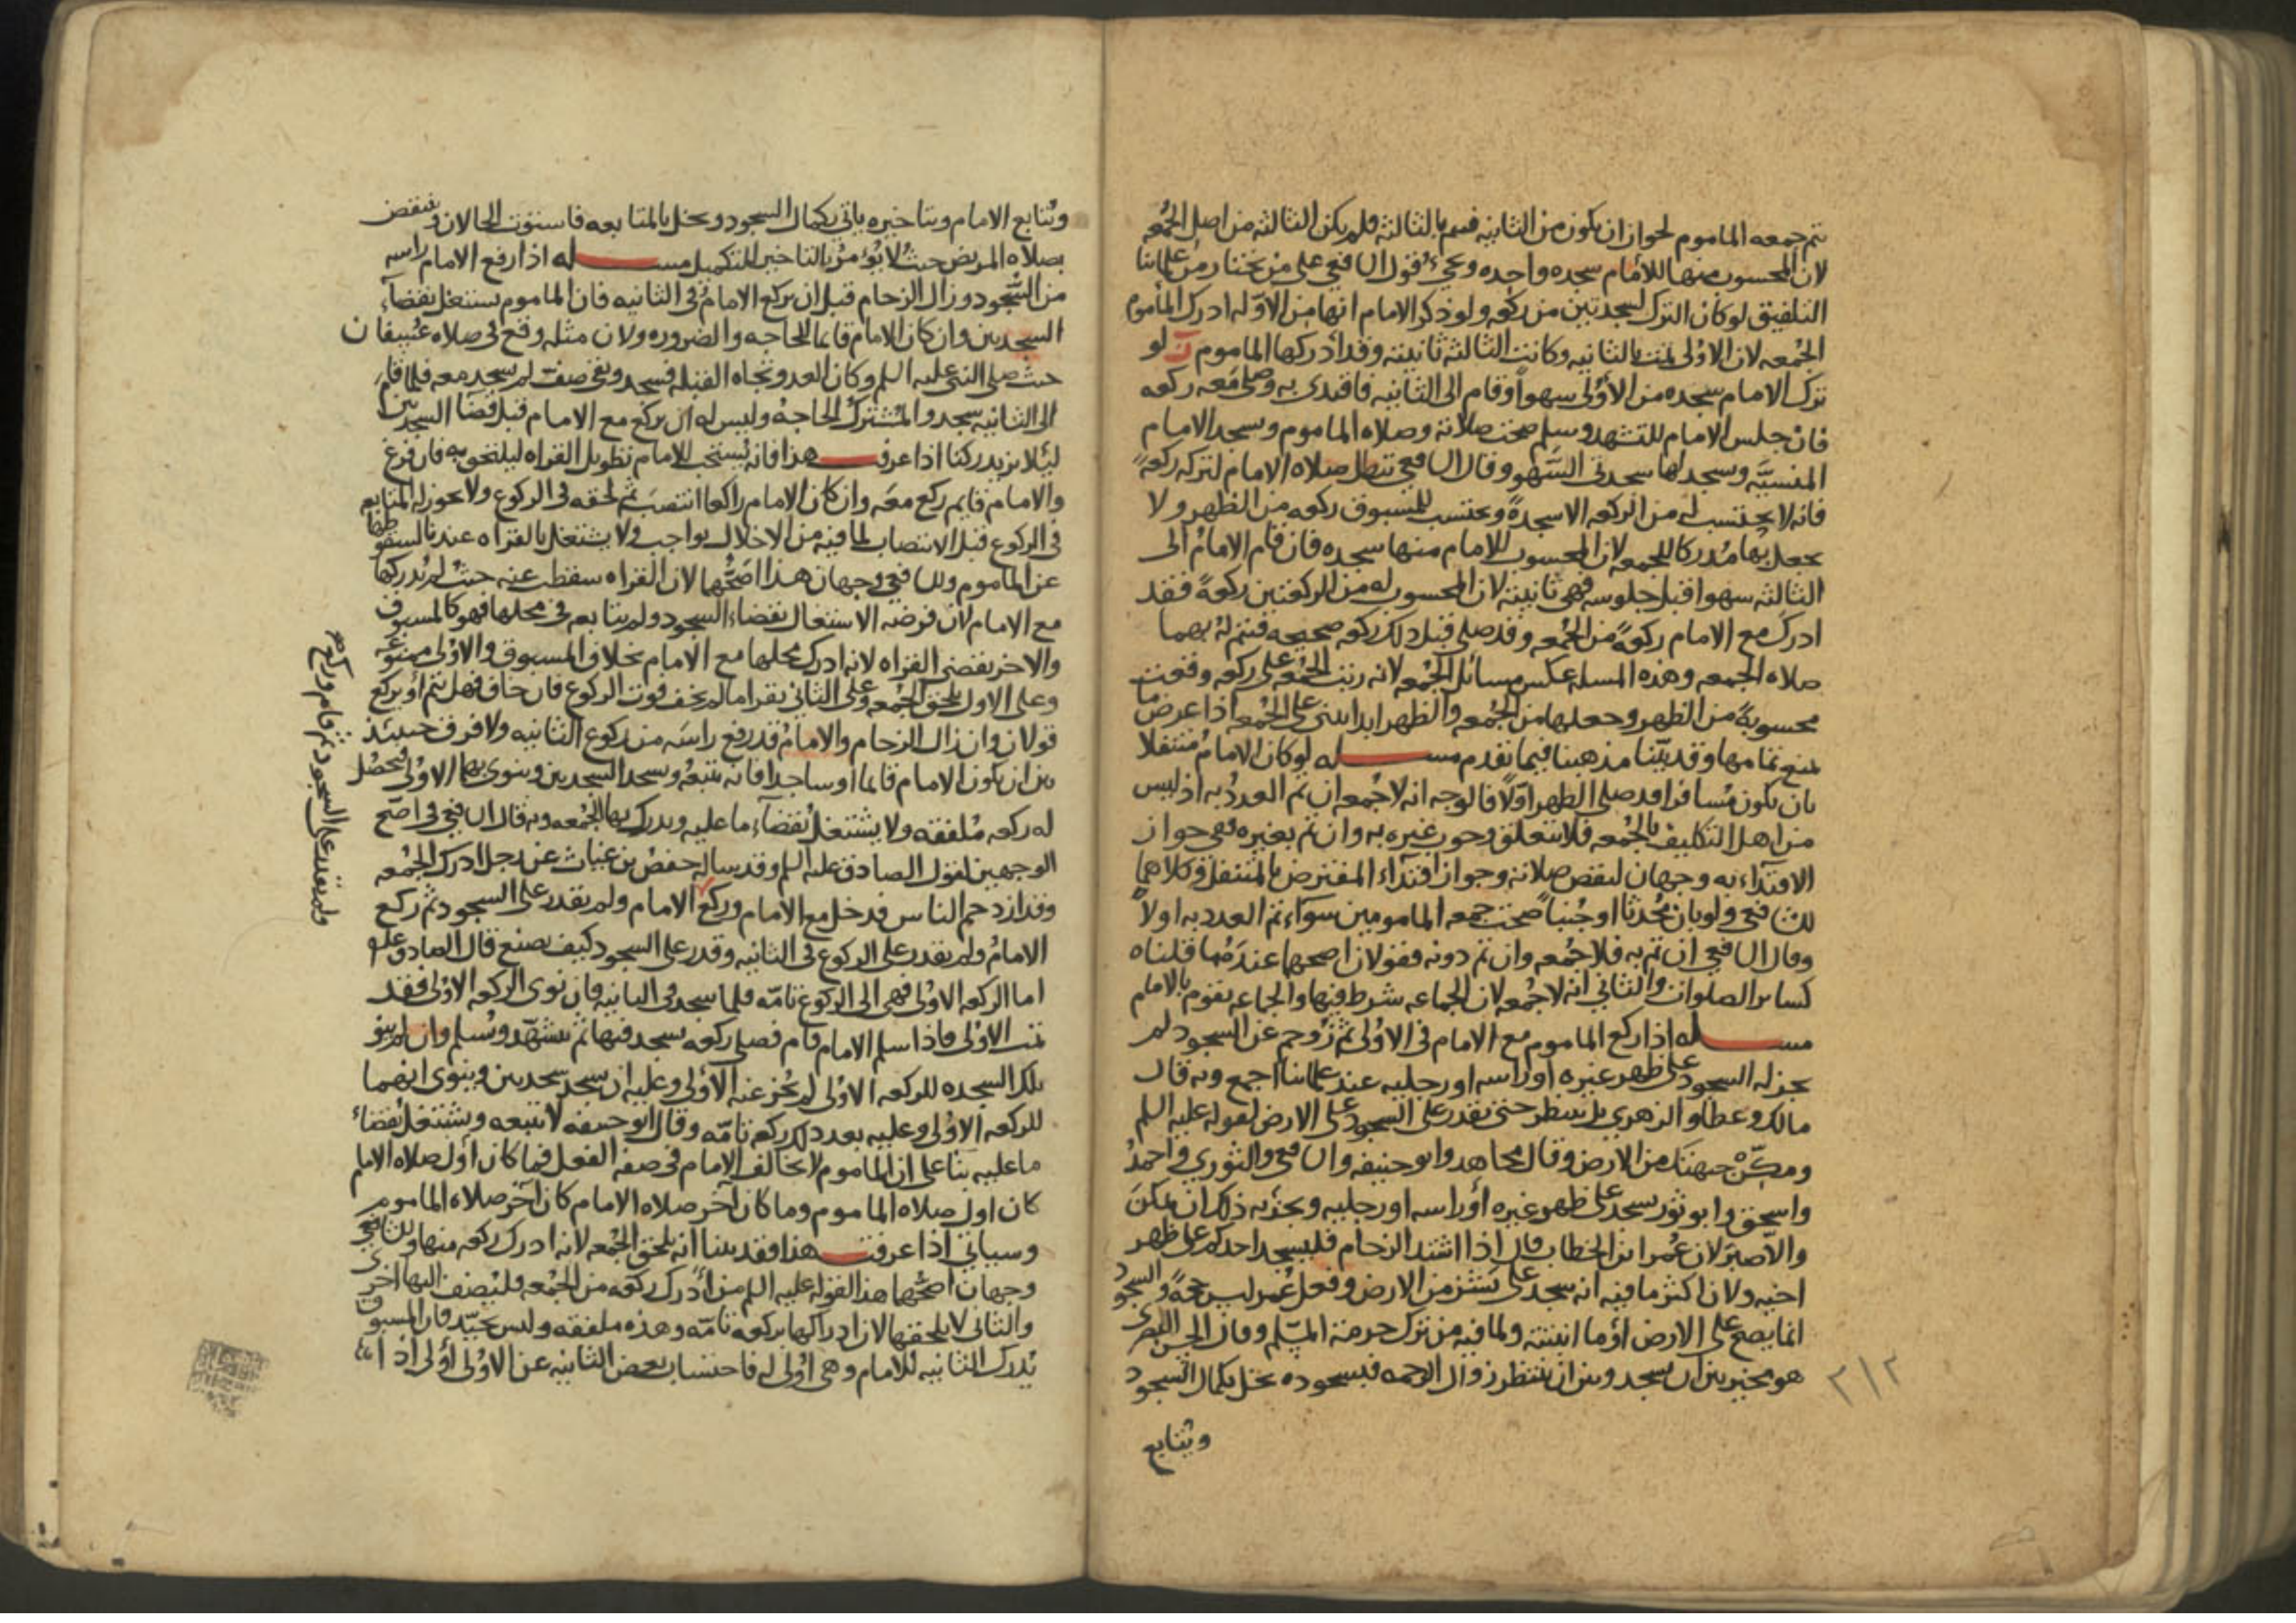 تتم جمعه الماموم لجواز ان يكون من الثانيه فيتم بالثالثه فلم يكن الثالثه من اصل الجمعه
لان المحسوب منها للامام سجده واحده وعلى قول الشافعي على من يختار من علمائنا
التلفيق لو كان الترك لسجدتين من ركعه ولو ذكر الامام انها من الاوله ادرك الماموم
الجمعه لان الاولى تمت بالثانيه وكانت الثالثه ثانيته وقد ادركها الماموم ت لو
ترك الامام سجده من الاولى سهوا وقام الى الثانيه فاقتدى به وصلى معه ركعه
فان جلس الامام للتشهد وسلم صحت صلاته وصلاه الماموم وسجد الامام
المنسيه وسجد لها سجدتى السهو وقال الشافعي تبطل صلاه الامام لتركه ركعه
فانه لا يحتسب له من الركعه الا سجدة ويحتسب للمسبوق ركعه من الظهر ولا
يجعل بها مدركا للجمعه لان المحسوب للامام منها سجده فان قام الامام الى
الثالثه سهوا قبل جلوسه فهى ثانيته لان المحسوب له من الركعتين ركعة فقد
ادرك مع الامام ركعة من الجمعه وقد صلى قبل ذلك ركعه صحيحه فيتم له بهما
صلاه الجمعه وهذه المسله عكس مسائل الجمعه لانه رتب الجمعه على ركعه وقعت
محسوبة من الظهر وجعلها من الجمعه والظهر ابدا يبنى على الجمعه اذا عرض ما
يمنع تمامها وقد بيّنا مذهبنا فيما تقدم مسله لو كان الامام متنفلا
بان يكون مسافرا قد صلى الظهر اولا فالوجه انه لا جمعه ان تم العدد به اذ ليس
من اهل التكليف بالجمعه فلا يتعلق وجوب غيره به وان تم بغيره ففى جواز
الاقتداء به وجهان لنقص صلاته وجواز اقتداء المفترض بالمتنفل وكلاهما
للشافعي ولو بان محدثا او جنبا صحت جمعه المامومين سواء تم العدد به اولا
وقال الشافعي ان تم به فلا جمعه وان تم دونه فقولان اصحهما عندهم ما قلناه
كسائر الصلوات والثاني انه لا جمعه لان الجماعه شرط فيها والجماعه تقوم بالامام
مسله اذا ركع الماموم مع الامام في الاولى ثم زوحم عن السجود لم
يجز له السجود على ظهر غيره او راسه او رجليه عند علمائنا اجمع وبه قال
مالك وعطا والزهري بل ينتظر حتى يقدر على السجود على الارض لقوله عليه السلم
ومكّن جبهتك من الارض وقال مجاهد وابو حنيفه والشافعي والثوري واحمد
واسحق وابو ثور يسجد على ظهر غيره او راسه او رجليه ويجزيه ذلك ان تمكن
والا صبر لان عمر ابن الخطاب قال اذا اشتد الزحام فليسجد احدكم على ظهر
اخيه ولان اكثر ما فيه انه سجد على نشز من الارض وفعل عمر ليس حجة والسجود
انما يصح على الارض او ما انبتته ولما فيه من ترك حرمه المسلم وقال الحسن البصرى
هو مخير بين ان يسجد وبين ان ينتظر زوال الزحمه فبسجوده يخل بكمال السجود
ويتابع
٢١٢
ويتابع الامام وبتاخيره ياتى بكمال السجود ويخل بالمتابعه فاستوت الحالان وينقض
بصلاه المريض حيث لا يؤمر بالتاخير للتكميل مسله اذا رفع الامام راسه
من السجود وزال الزحام قبل ان يركع الامام في الثانيه فان الماموم يشتغل بقضاء
السجدتين وان كان الامام قائما للحاجه والضروره ولان مثله وقع في صلاه عسفان
حيث صلى النبى عليه السلم وكان العدو تجاه القبله فسجد وبقى صف لم يسجد معه فلما قام
الى الثانيه سجد والمشترك الحاجه وليس له ان يركع مع الامام قبل قضا السجدتين
ليلا يزيد ركنا اذا عرفت هذا فانه يستحب للامام تطويل القراه ليلحق به فان فرغ
والامام قايم ركع معه وان كان الامام راكعا انتصب ثم لحقه في الركوع ولا يجوز له المتابعه
في الركوع قبل الانتصاب لما فيه من الاخلال بواجب ولا يشتغل بالقراه عندنا لسقوطها
عن الماموم وللشافعي وجهان هذا اصحهما لان القراه سقطت عنه حيث لم يدركها
مع الامام لان فرضه الاشتغال بقضاء السجود ولم يتابعه في محلها فهو كالمسبوق
والاخر يقضى القراه لانه ادرك محلها مع الامام بخلاف المسبوق والاولى ممنوعه
وعلى الاول يلحق الجمعه وعلى الثاني يقرا ما لم يخف فوت الركوع فان خاف فهل يتم او يركع
قولان وان زال الزحام والامام قد رفع راسه من ركوع الثانيه ولا فرق حينئذ
بين ان يكون الامام قائما او ساجدا فانه يتبعه ويسجد السجدتين وينوى بهما الاولى فيحصل
له ركعه ملفقه ولا يشتغل بقضاء ما عليه ويدرك بها الجمعه وبه قال الشافعي في اصح
الوجهين لقول الصادق عليه السلم وقد ساله حفص بن غياث عن رجل ادرك الجمعه
وقد ازدحم الناس فدخل مع الامام وركع الامام ولم يقدر على السجود ثم ركع
الامام ولم يقدر على الركوع في الثانيه وقدر على السجود كيف يصنع قال الصادق عليه
اما الركعه الاولى فهى الى الركوع تامّه فلما سجد في الثانيه فان نوى الركعه الاولى فقد
تمت الاولى فاذا سلم الامام قام فصلى ركعه يسجد فيها ثم يتشهد ويسلم وان لم ينو
تلك السجده للركعه الاولى لم تجز عنه الاولى وعليه ان يسجد سجدتين وينوى انهما
للركعه الاولى وعليه بعد ذلك ركعه تامّه وقال ابو حنيفه لا يتبعه ويشتغل بقضاء
ما عليه بنا على ان الماموم لا يخالف الامام في صفه الفعل فما كان اول صلاه الامام
كان اول صلاه الماموم وما كان اخر صلاه الامام كان اخر صلاه الماموم
وسياتي اذا عرفت هذا فقد بينا انه يلحق الجمعه لانه ادرك ركعه منها وللشافعي
وجهان اصحهما هذا لقوله عليه السلم من ادرك ركعه من الجمعه فليضف اليها اخرى
والثاني لا يلحقها لان ادراكها بركعه تامّه وهذه ملفقه وليس بجيّد فان المسبوق
يدرك الثانيه للامام وهى اولى له فاحتساب بعض الثانيه عن الاولى اولى اذا
ولم يقدر على السجود ثم قام وركع